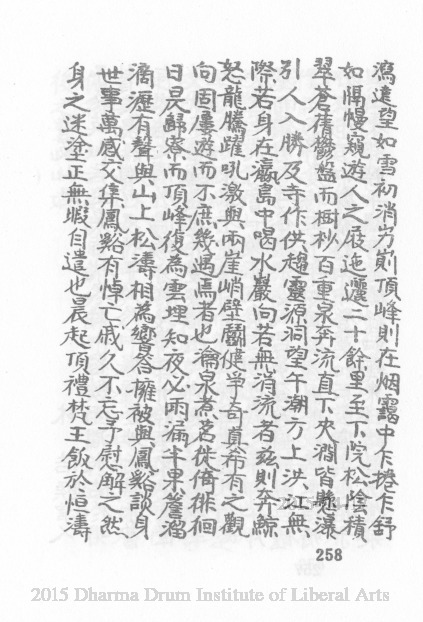 瀉遠望如雪初消岕崱頂峰則在烟靄中乍捲乍舒
如隔幔窺遊人之屐迤邐二十餘里至下院松陰積
翠蒼舊鬱盤而樹杪百重泉奔流直下夾澗皆懸瀑
引人入勝及寺作供趨靈源洞望午潮方上洪江無
際若身在瀛島中喝水巖向若無涓流者茲則奔鯨
怒龍騰躍吼激與兩崖峭壁鬬健爭奇真希有之觀
向固屢遊而不庶幾遇焉者也瀹泉煮茗徙倚徘徊
日昃歸寮而頂峰復為雲埋知夜必雨漏半果簷溜
滴瀝有聲與山上松濤相為響答擁被與鳳谿談身
世事萬感交集鳳谿有悼亡戚久不忘予慰解之然
身之迷塗正無暇自遣也晨起頂禮梵王飯於恒濤
258
2015 Dharma Drum Institute of Liberal Arts